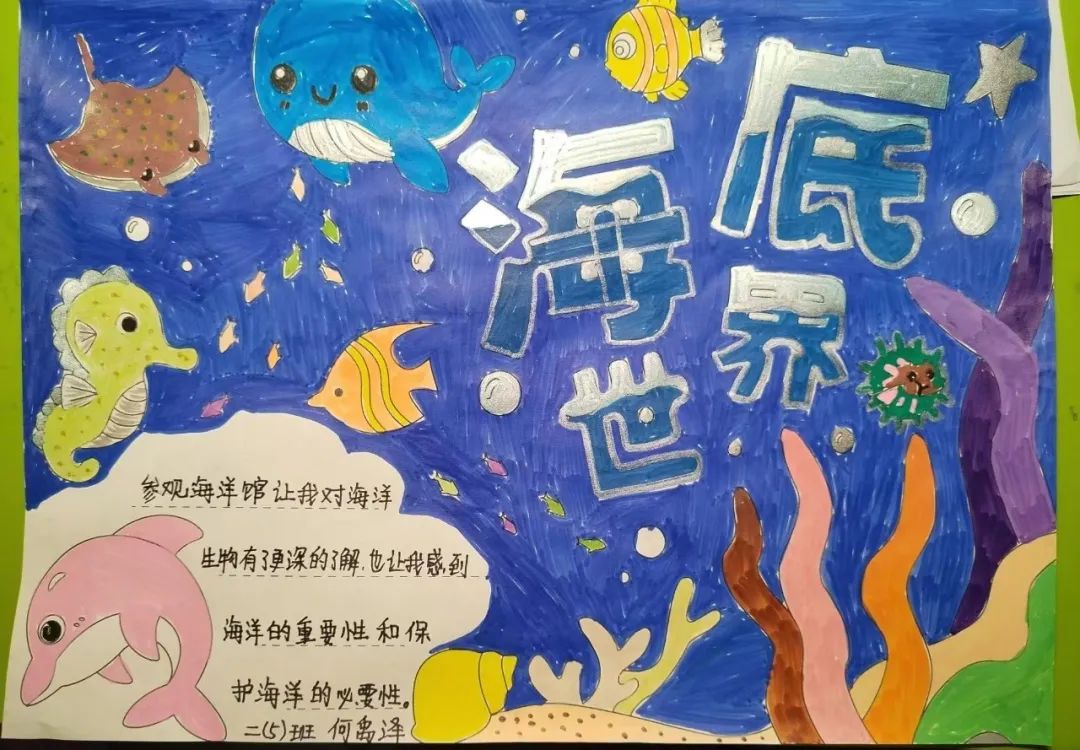 海底
世界
参观海洋馆让我对海洋
生物有了更深的了解.也让我感到
海洋的重要性和保
护海洋的必要性。
二(5)班 何禹泽